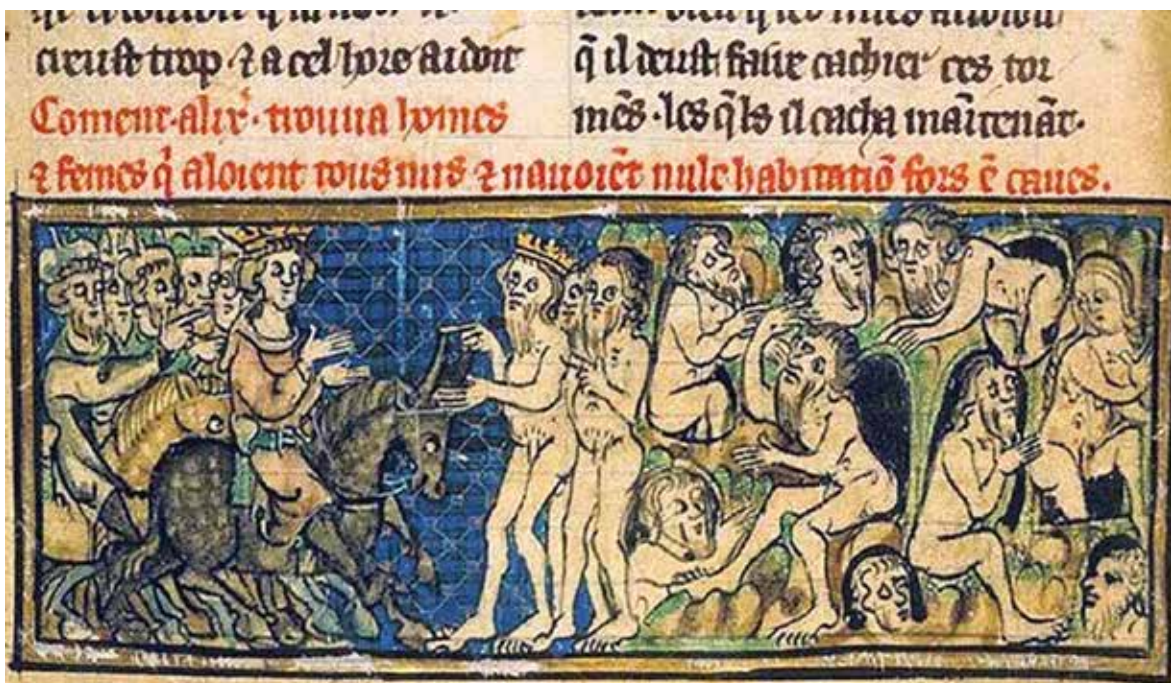 creust trop ⁊ a cel hore ardoit
Coment·alix̾·trouua homes
q̄ il deust faire cachier ces tor
mēs·les q̄ls il cacha maītenāt·
⁊ femes q̍ aloient tous nus ⁊ nauoiēt nule habitatiō fors ē caues.